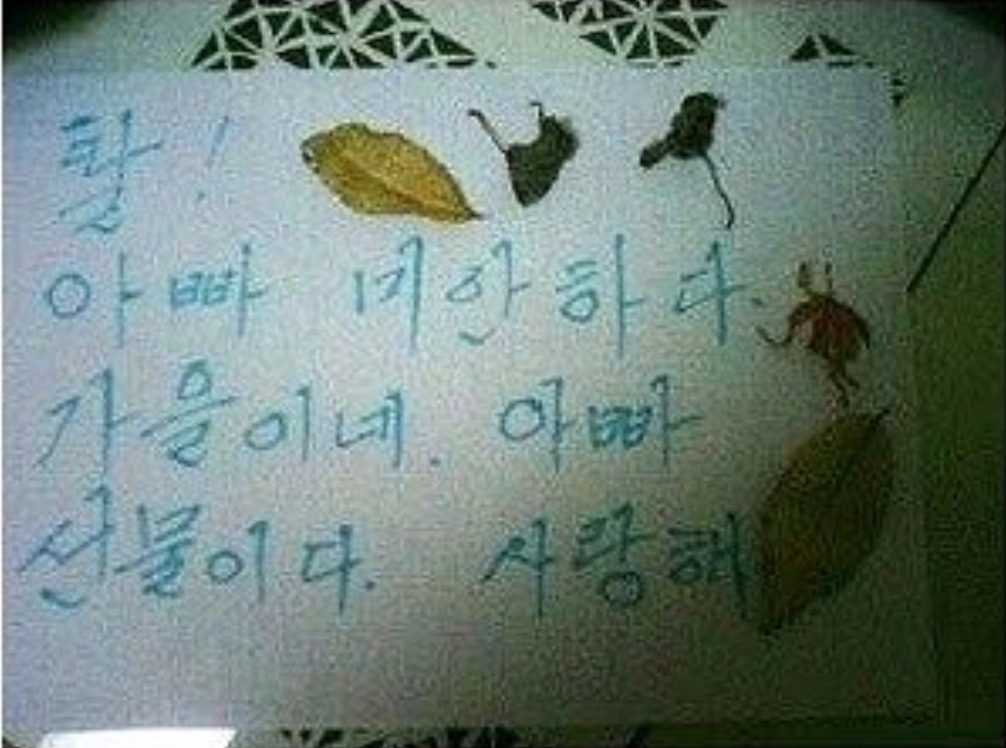 딸!
아빠 미안하다.
가을이네. 아빠
선물이다. 사랑해